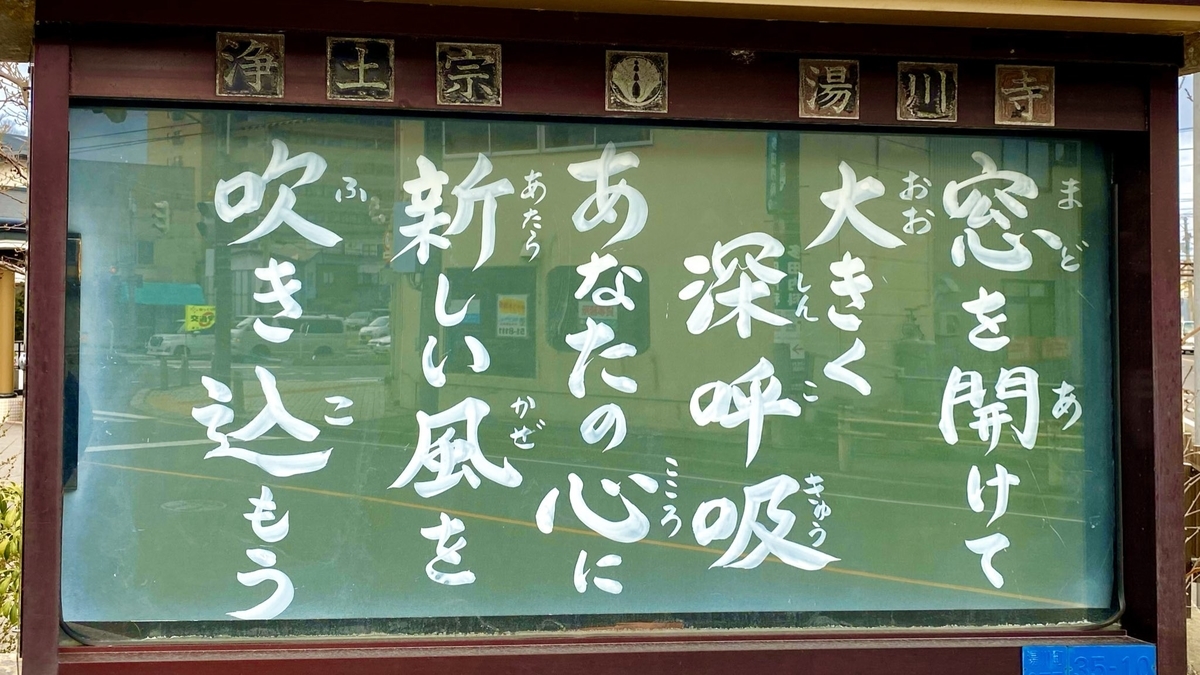 浄土宗 湯川寺
窓を開けて
まど あ
大きく
おお
深呼吸
しん こ きゅう
あなたの心に
こころ
新しい風を
あたら かぜ
吹き込もう
ふ こ
35-10